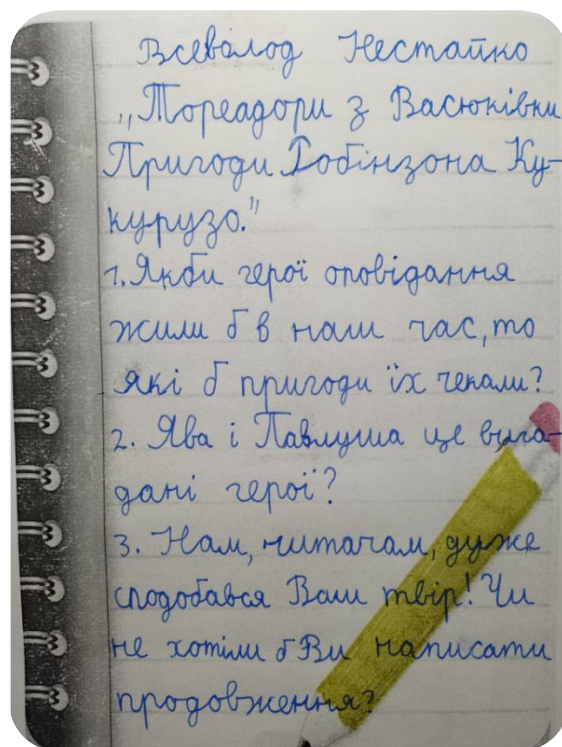 Всеволод Нестайко
„Тореадори з Васюківки
Пригоди Робінзона Ку-
курузо."
1. Якби герої оповідання
жили б в наш час, то
які б пригоди їх чекали?
2. Ява і Павлуша це вига-
дані герої?
3. Нам, читачам, дуже
сподобався Ваш твір! Чи
не хотіли б Ви написати
продовження?